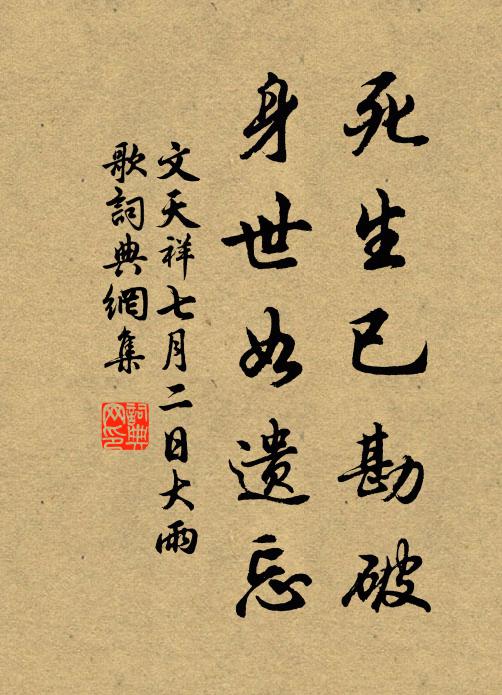 死生已勘破
身世如遗忘
文天祥七月二日大雨
歌詞典網集
詞典网印